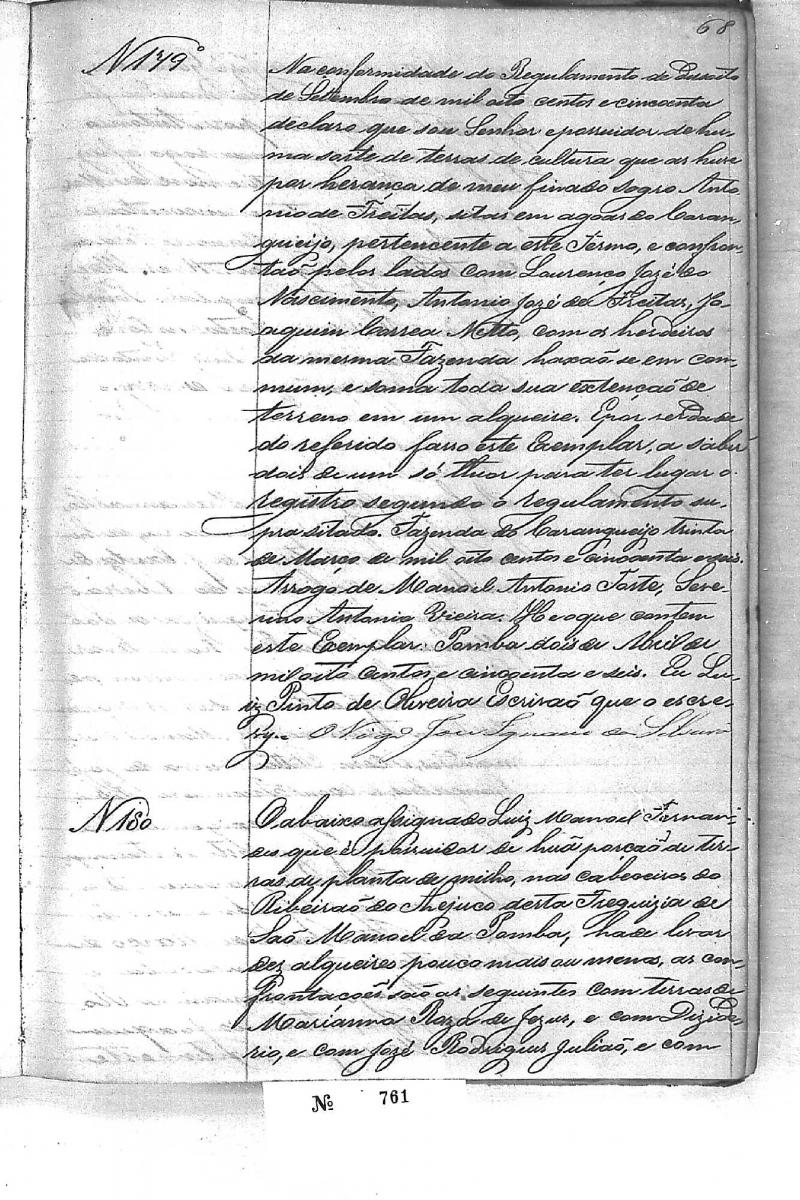 68
N 179º
Na conformidade do Regulamento de
de Setembro de mil oito centos e cincoenta
declaro que sou Senhor e possuidor de hu-
ma sorte de terras de cultura que as huve
por herança de meu finado sogro Anto
nio de Freitas, sitas em agoas do Caran,
gueijo, pertencente a este Termo, e confron-
taõ pelos lados com Lourenço Jozé do
Nascimento, Antonio Jozé de Freitas, Jo-
aquim Correa Netto, com os herdeiros
da mesma Fazenda haxaõ se em com-
mum, e soma toda sua extençaõ de
terreno em um alqueire. E por verdade
do referido fasso este Exemplar, a saber
dois de um só theor para ter lugar o
registro segundo o regulamento su,
pra sitado. Fazenda do Carangueijo trinta
de Março de mil oito centos e cincoenta e seis.
Arrogo de Manoel Antonio Forte, Seve-
rino Antonio Vieira. He o que contem
este Exemplar. Pomba dois de Abril de
mil oito centos e cincoenta e seis. Eu Lu-
iz Pinto de Oliveira Escrivaõ que o escre-
vy. O Vigº Jose Ignacio da
N 180
O abaixo assignado Luiz Manoel Fernan-
des que é possuidor de huã porçaõ de ter-
ras de planta de milho, nas cabeceiras do
Ribeiraõ do Thejuco desta Freguizia de
Saõ Manoel da Pomba, ha de levar
dez alqueires pouco mais ou menos, as con-
frontacoẽs saõ as seguintes com terras de
Marianna Roza de Jezus, e com Dizide-
rio, e com Jozé Rodrigues Juliaõ, e com
Nº 761